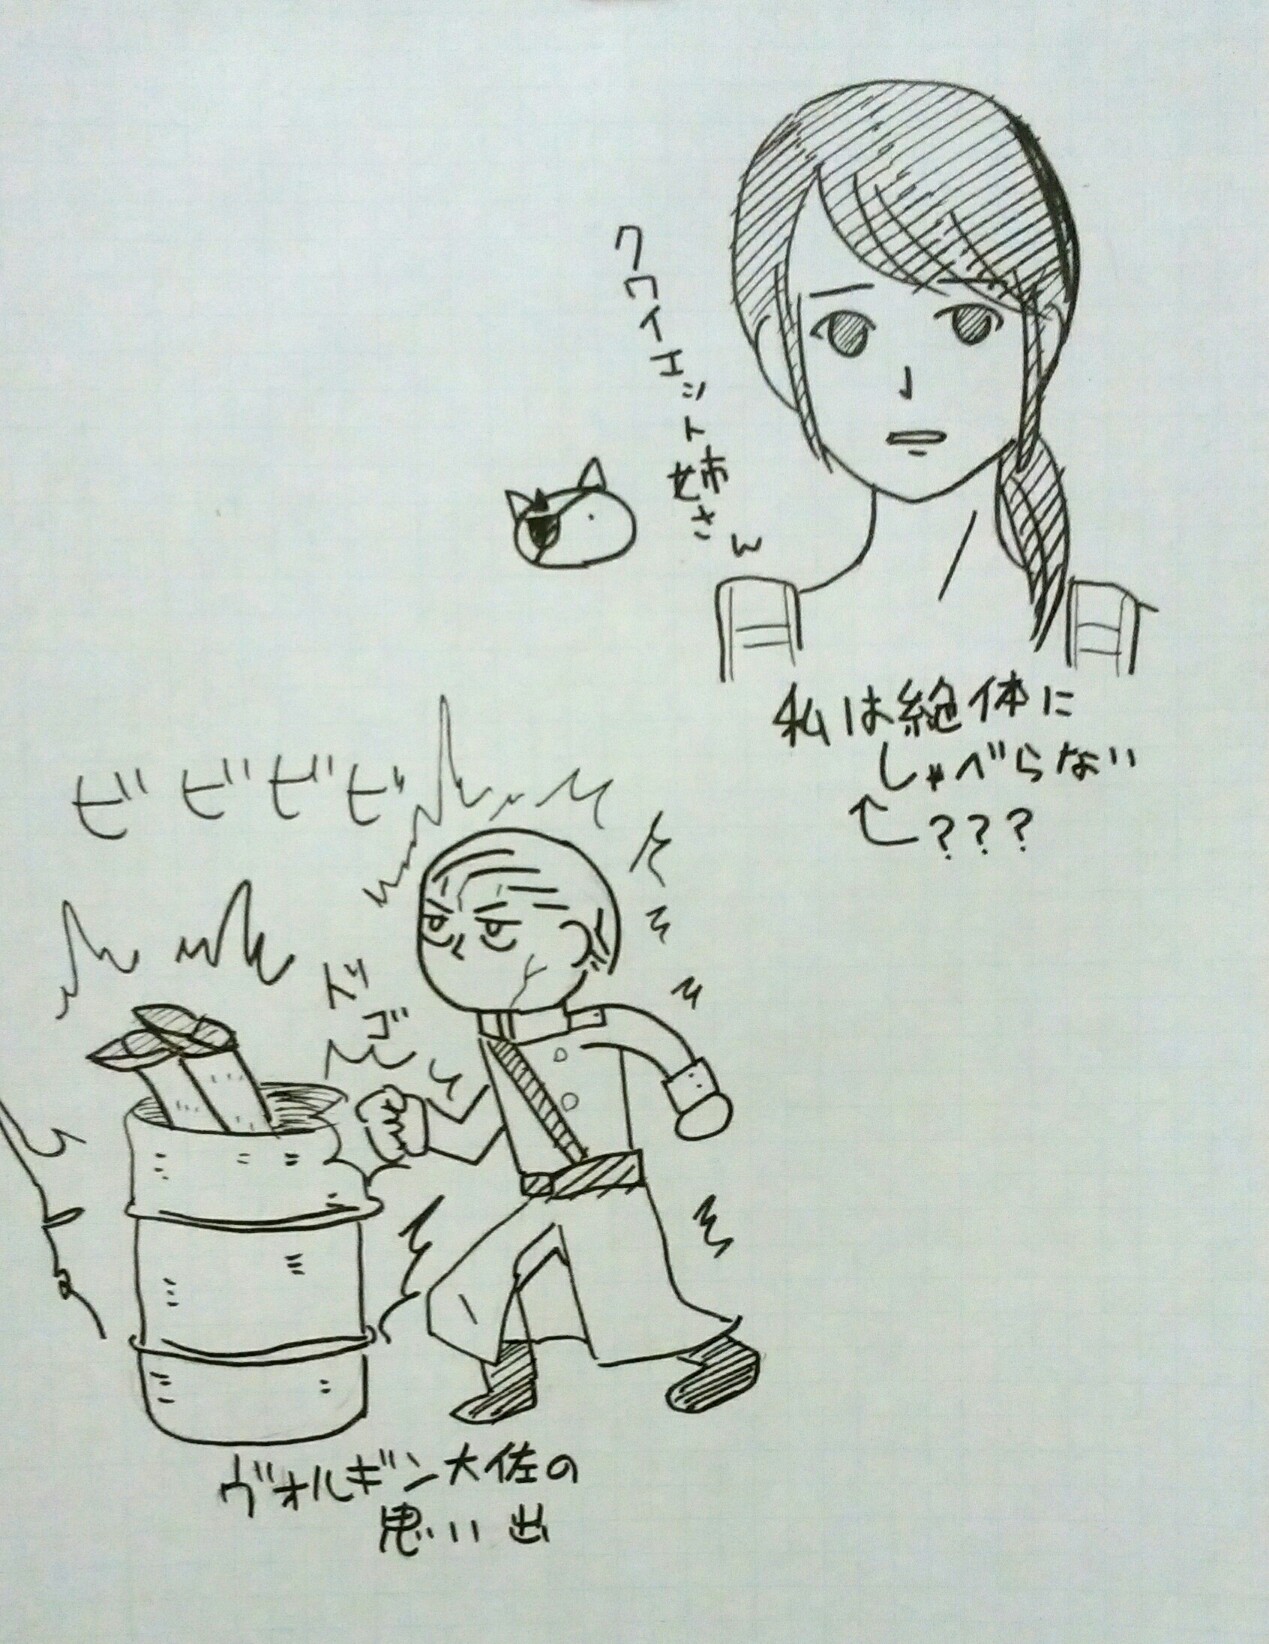 クワイエット姉さん
私は絶体に
しゃべらない
???
ビビビビ
ドゴ
ヴォルギン大佐の
思い出